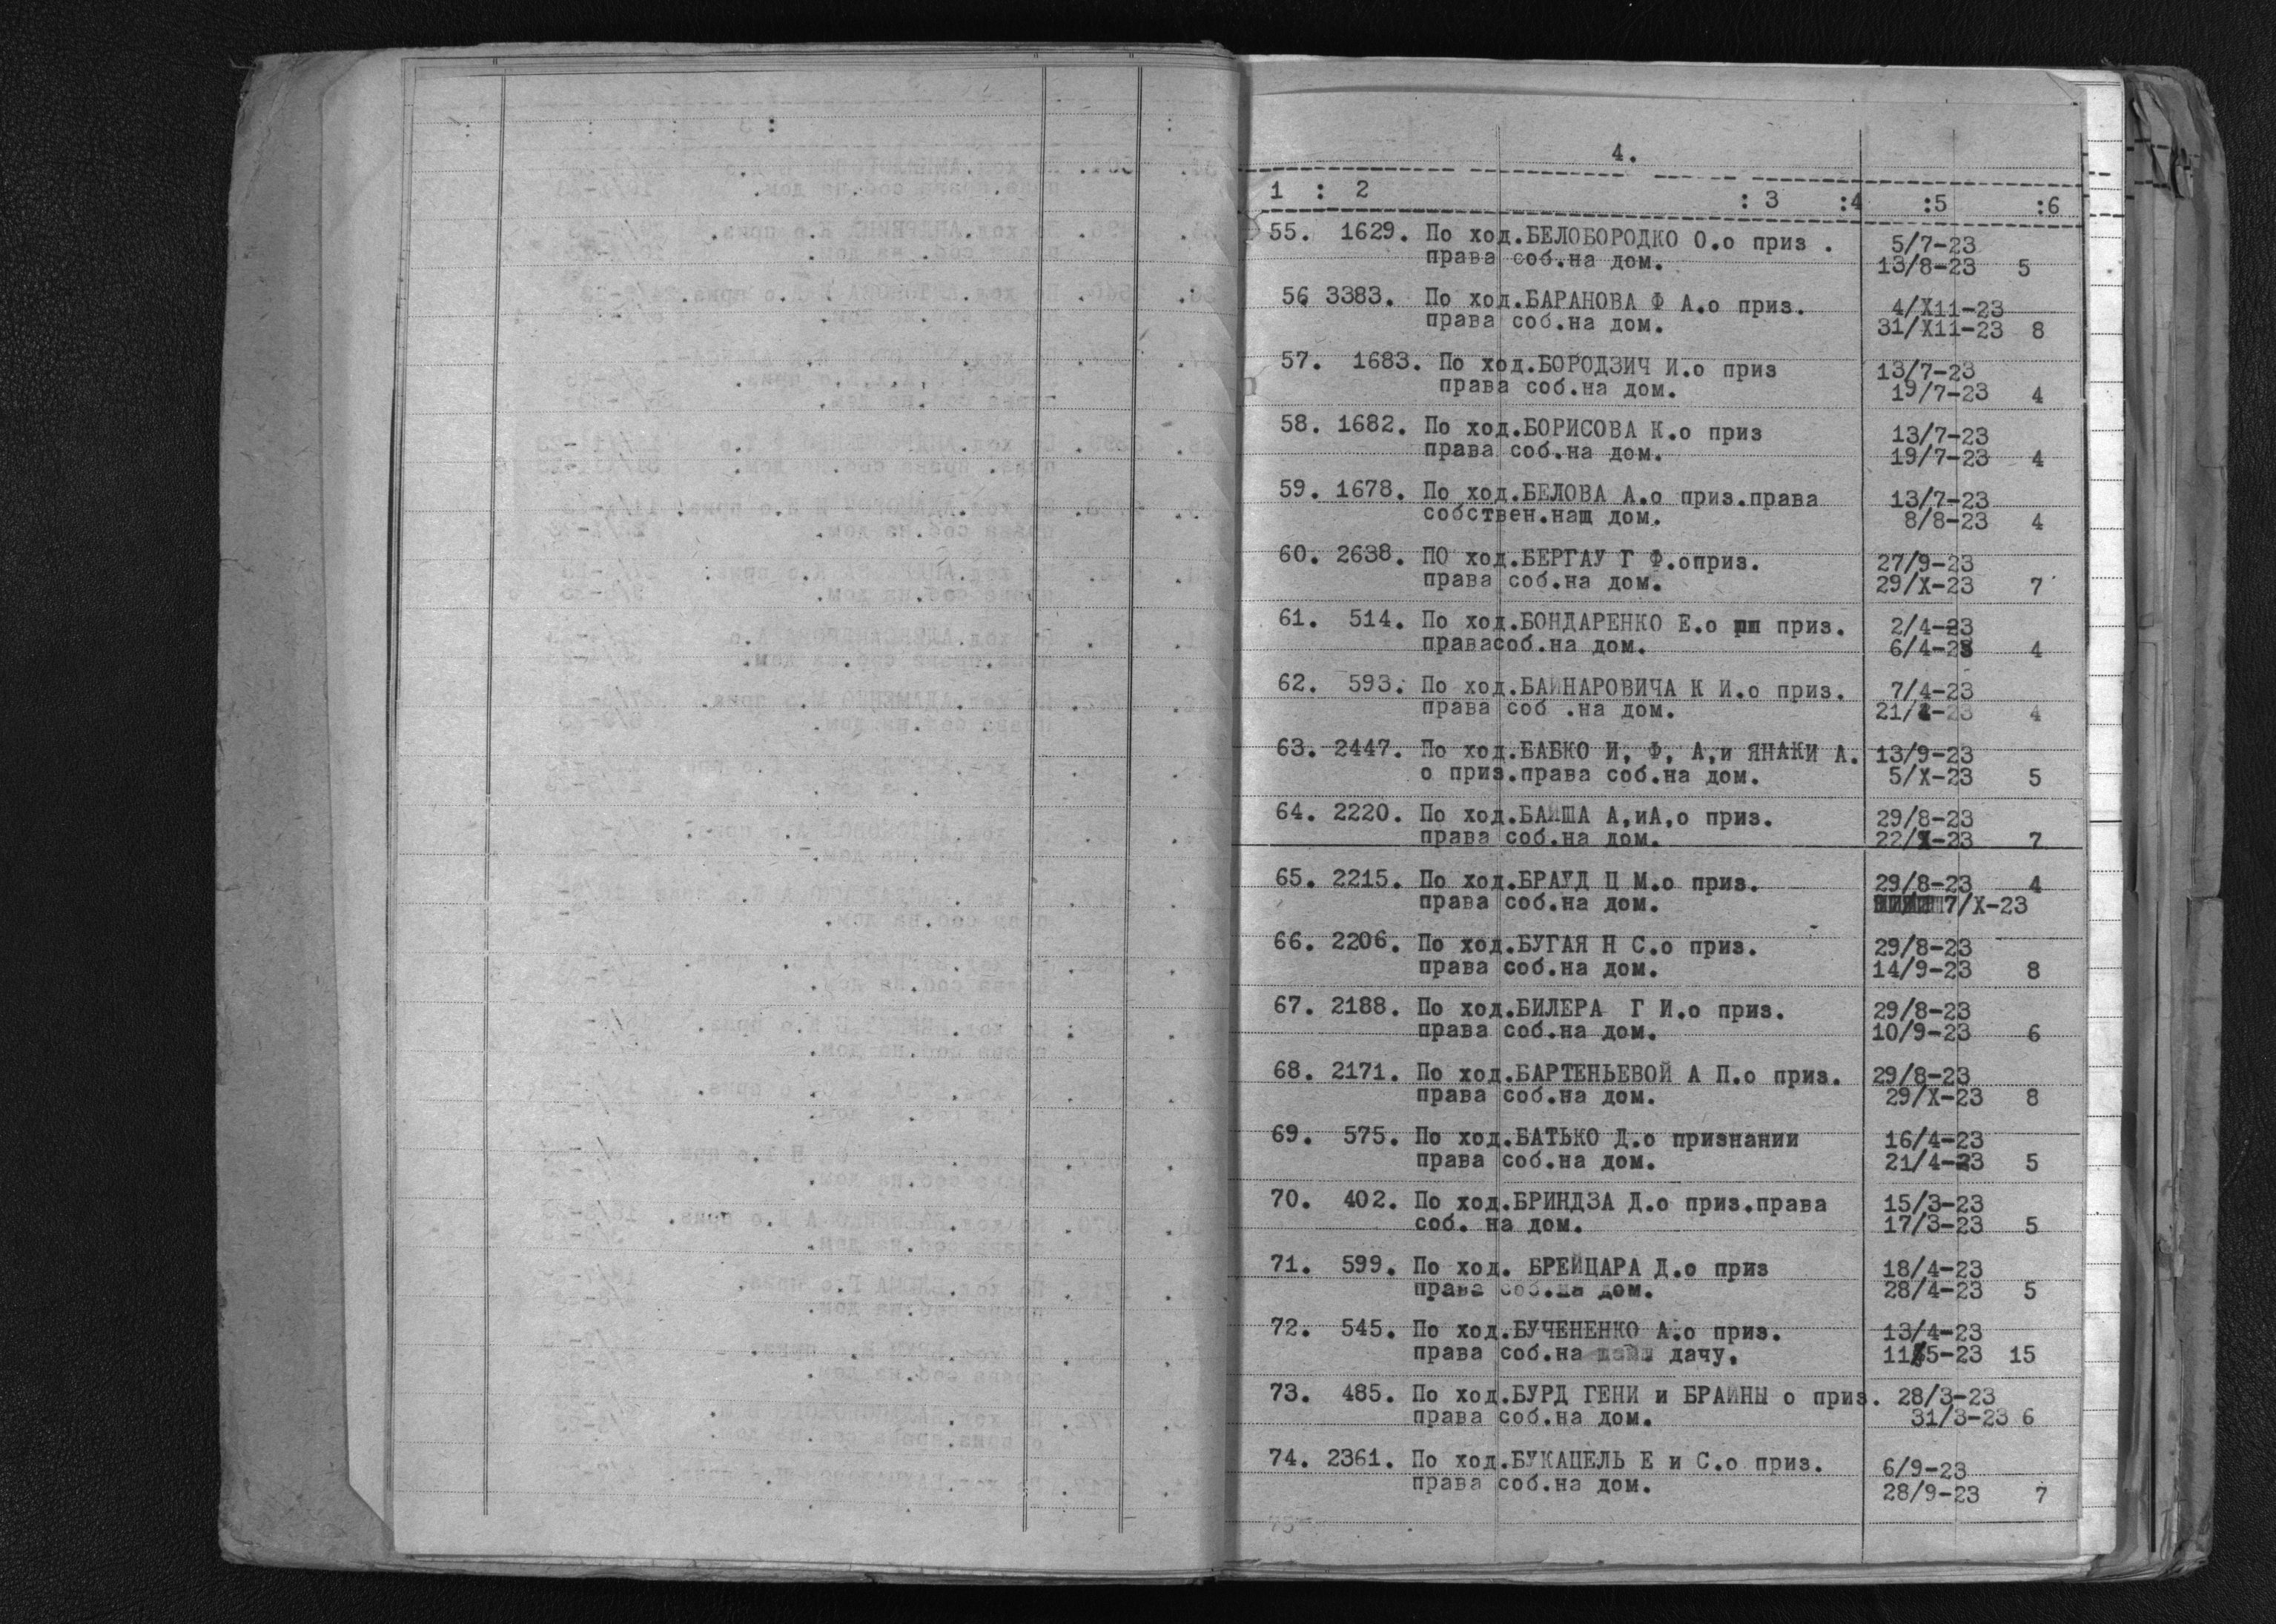 4.
1 : 2 : 3 :4 :5 :6
55. 1629. По ход.БЕЛОБОРОДКО О.о приз . 5/7-23
права соб.на дом. 13/8-23 5
56 3383. По ход.БАРАНОВА Ф А.о приз. 4/X11-23
права соб.на дом. 31/X11-23 8
57. 1683. По ход.БОРОДЗИЧ И.о приз 13/7-23
права соб.на дом. 19/7-23 4
58. 1682. По ход.БОРИСОВА К.о приз 13/7-23
права соб.на дом. 19/7-23 4
59. 1678. По ход.БЕЛОВА А.о приз.права 13/7-23
собствен.нащ дом. 8/8-23 4
60. 2638. ПО ход.БЕРГАУ Г Ф.оприз. 27/9-23
права соб.на дом. 29/X-23 7
61. 514. По ход.БОНДАРЕНКО Е.о приз. 2/4-23
правасоб.на дом. 6/4-23 4
62. 593. По ход.БАЙНАРОВИЧА К И.о приз. 7/4-23
права соб .на дом. 21/4-23 4
63. 2447. По ход.БАБКО И, Ф, А,и ЯНАКИ А. 13/9-23
о приз.права соб.на дом. 5/X-23 5
64. 2220. По ход.БАЙША А,иА,о приз. 29/8-23
права соб.на дом. 22/X-23 7
65. 2215. По ход.БРАУД Ц М.о приз. 29/8-23 4
права соб.на дом. 7/X-23
66. 2206. По ход.БУГАЯ Н С.о приз. 29/8-23
права соб.на дом. 14/9-23 8
67. 2188. По ход.БИЛЕРА Г И.о приз. 29/8-23
права соб.на дом. 10/9-23 6
68. 2171. По ход.БАРТЕНЬЕВОЙ А П.о приз. 29/8-23
права соб.на дом. 29/X-23 8
69. 575. По ход.БАТЬКО Д.о признании 16/4-23
права соб.на дом. 21/4-23 5
70. 402. По ход.БРИНДЗА Д.о приз.права 15/3-23
соб. на дом. 17/3-23 5
71. 599. По ход. БРЕЙЦАРА Д.о приз 18/4-23
права соб.на дом. 28/4-23 5
72. 545. По ход.БУЧЕНЕНКО А.о приз. 13/4-23
права соб.на дачу. 11/5-23 15
73. 485. По ход.БУРД ГЕНИ и БРАЙНЫ о приз. 28/3-23
права соб.на дом. 31/3-23 6
74. 2361. По ход.БУКАЦЕЛЬ Е и С.о приз. 6/9-23
права соб.на дом. 28/9-23 7